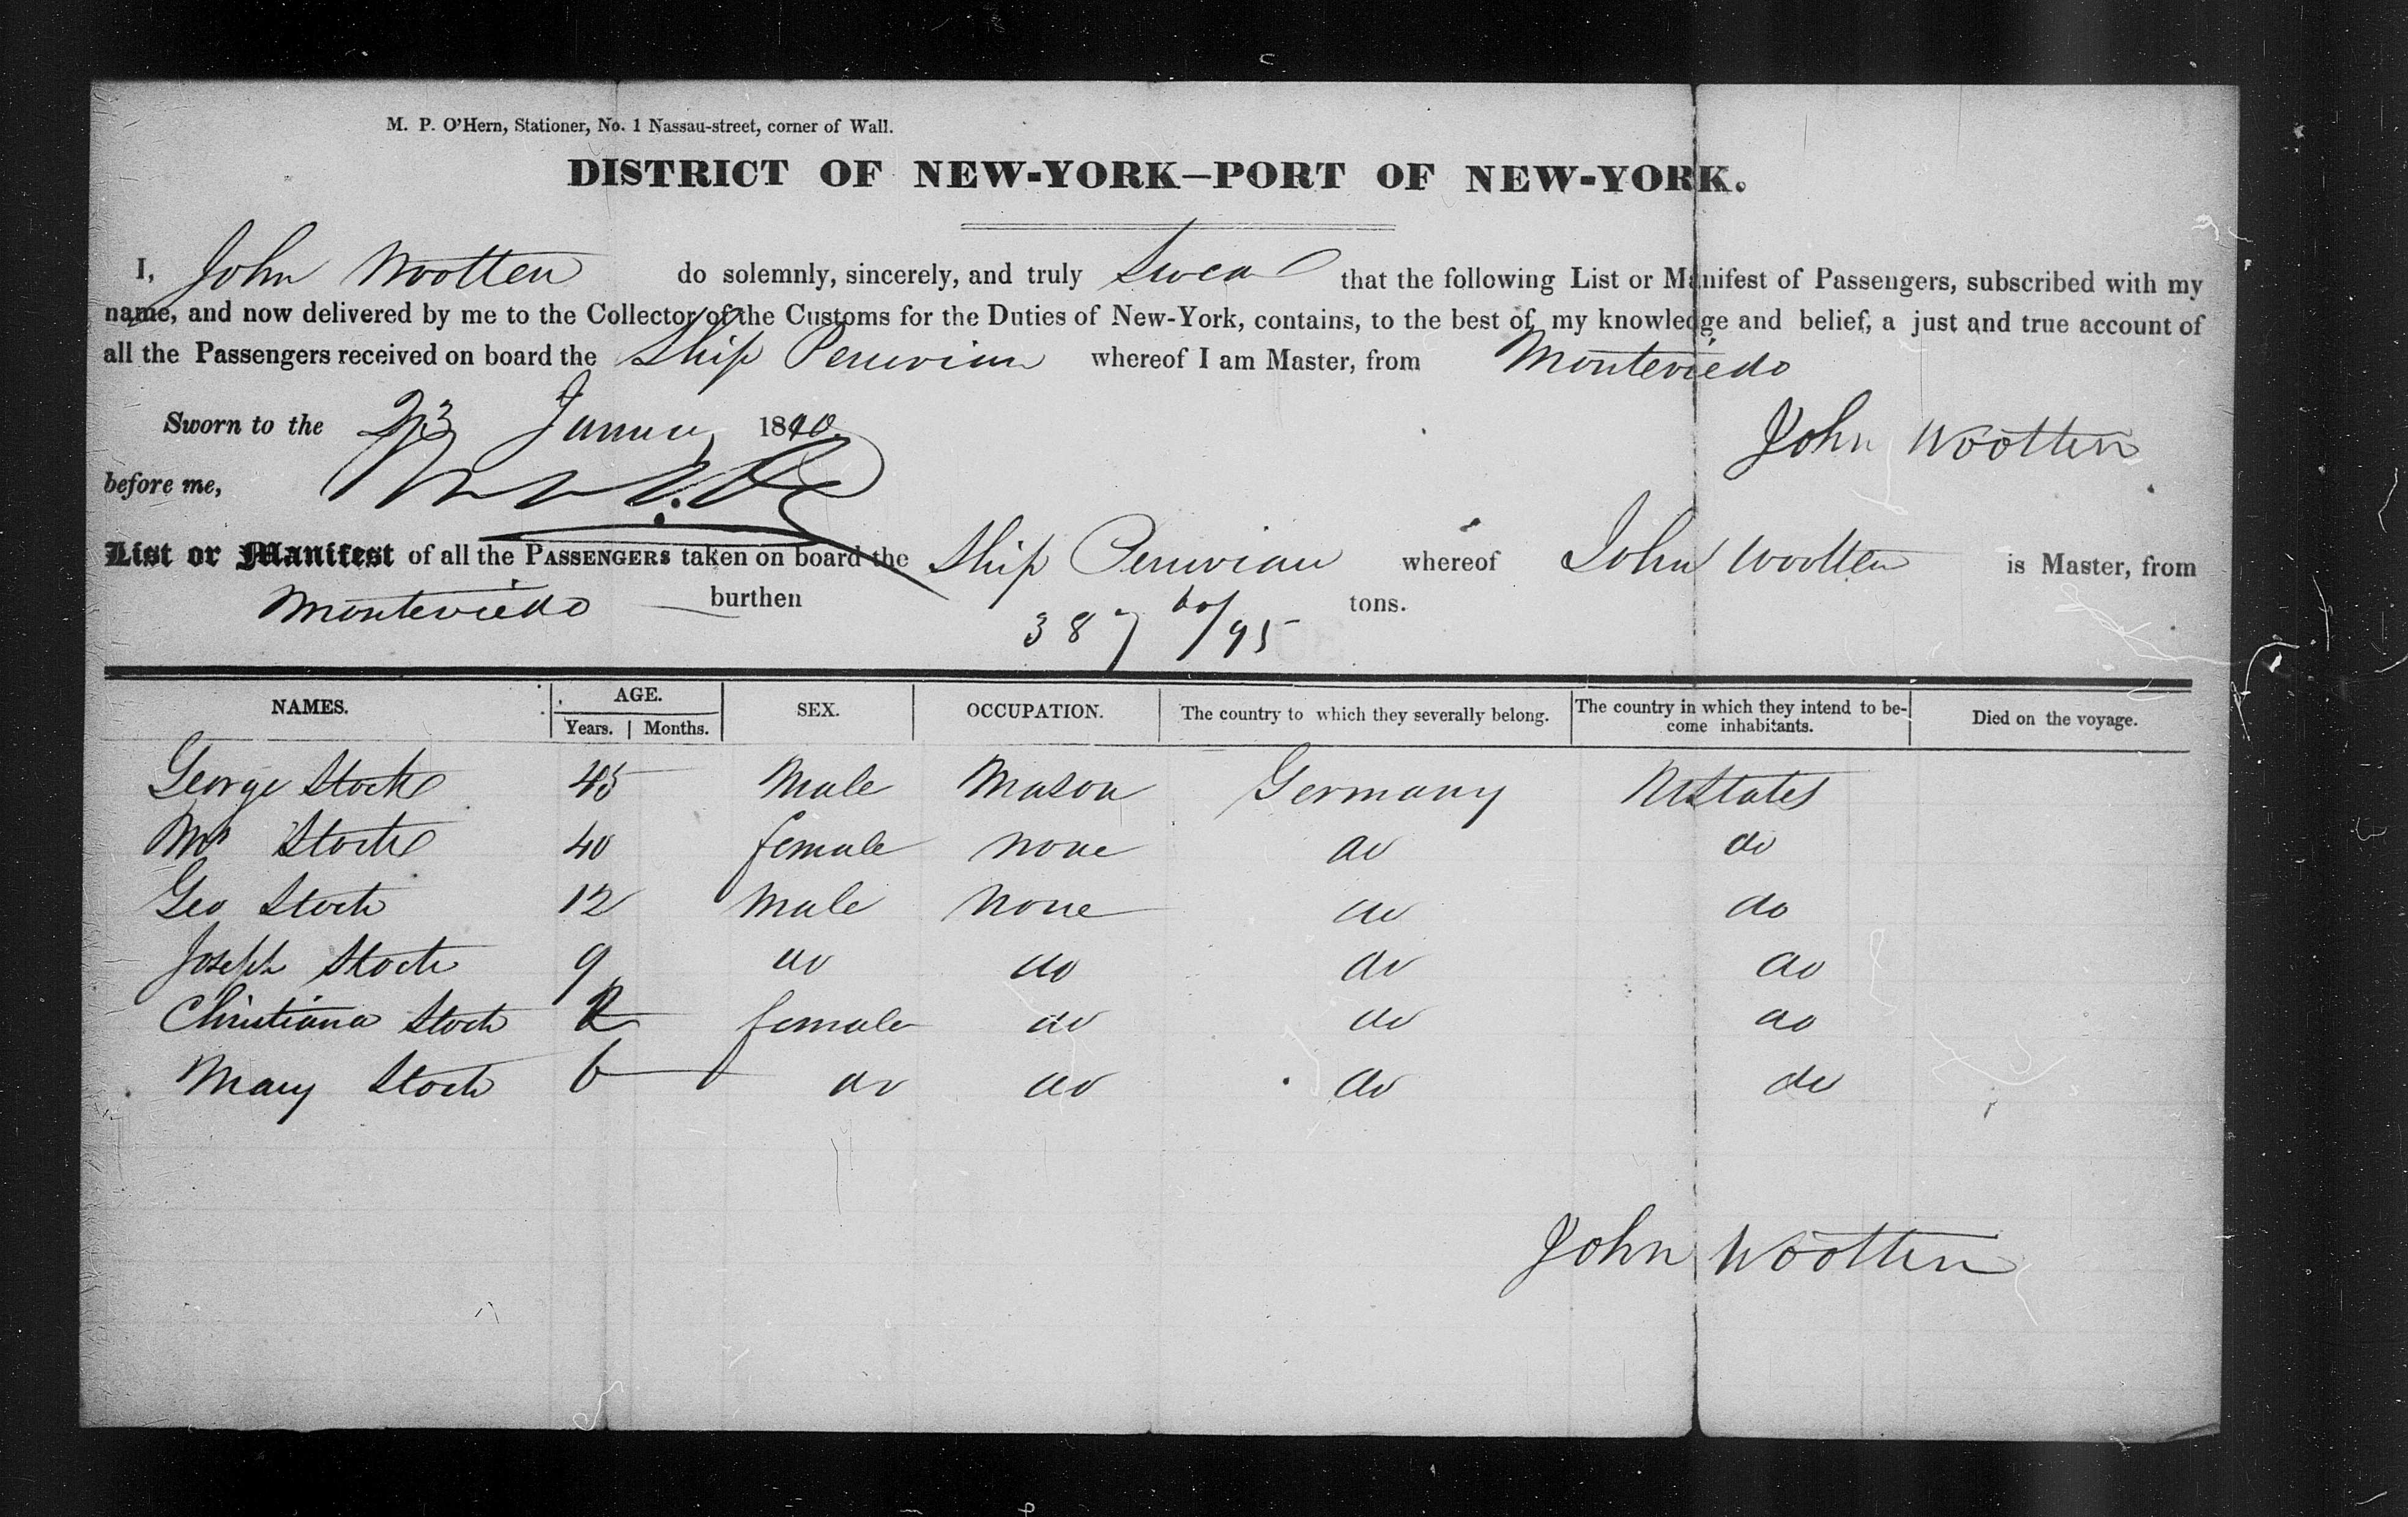 M. P. O'Hern, Stationer, No. 1 Nassau-street, corner of Wall.
DISTRICT OF NEW-YORK—PORT OF NEW-YORK.
I, John Wootten do solemnly, sincerely, and truly Swear that the following List or Manifest of Passengers, subscribed with my
name, and now delivered by me to the Collector of the Customs for the Duties of New-York, contains, to the best of my knowledge and belief, a just and true account of
all the Passengers received on board the Ship Peruvian whereof I am Master, from Monteviedo
Sworn to the 23 January 1840
John Wootten
before me,
List or Manifest of all the PASSENGERS taken on board the Ship Peruvian whereof John Wootten is Master, from
Monteviedo burthen 387 60/95 tons.
NAMES. AGE. Years. Months. SEX. OCCUPATION. The country to which they severally belong. The country in which they intend to become inhabitants. Died on the voyage.
George Stock 45 Male Mason Germany UStates
Mrs Stock 40 female none do do
Geo Stock 12 Male None do do
Joseph Stock 9 do do do do
Christiana Stock female do do do
Mary Stock 6 do do do do
John Wootten